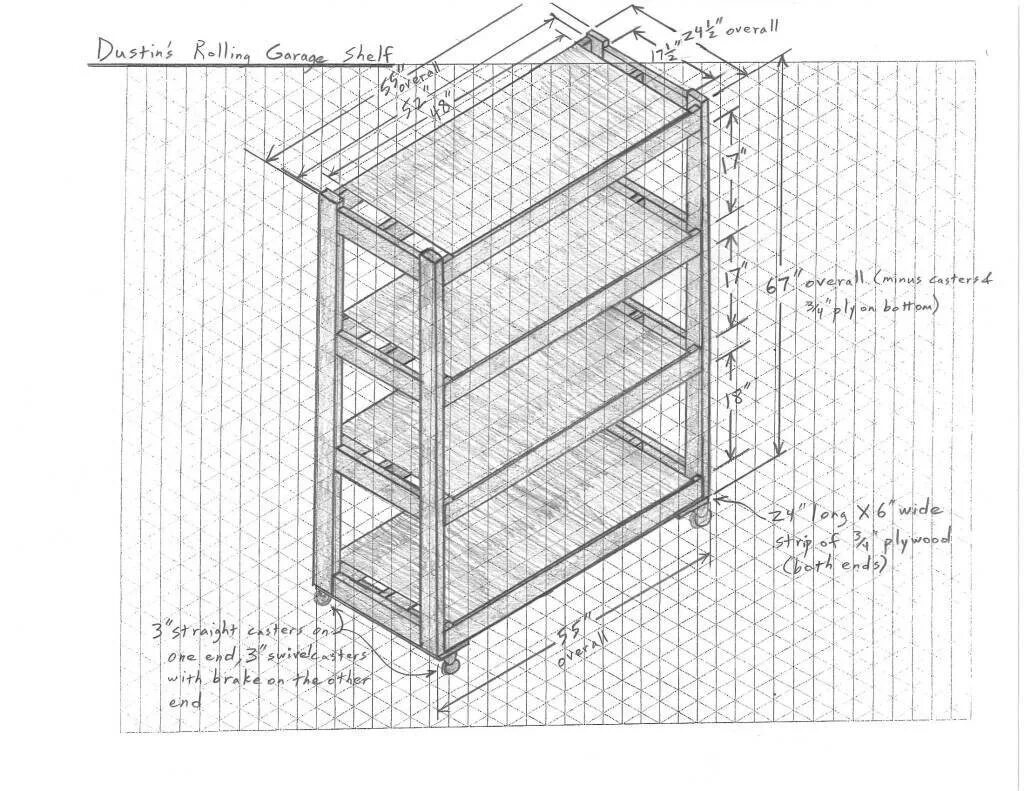 Dustin's Rolling Garage Shelf
24½" overall
17½"
55" overall
52"
48"
17"
17"
67" overall (minus casters &
¾" ply on bottom)
18"
24" long X 6" wide
strip of ¾" plywood
(both ends)
55"
overall
3" straight casters on
one end, 3" swivel casters
with brake on the other
end